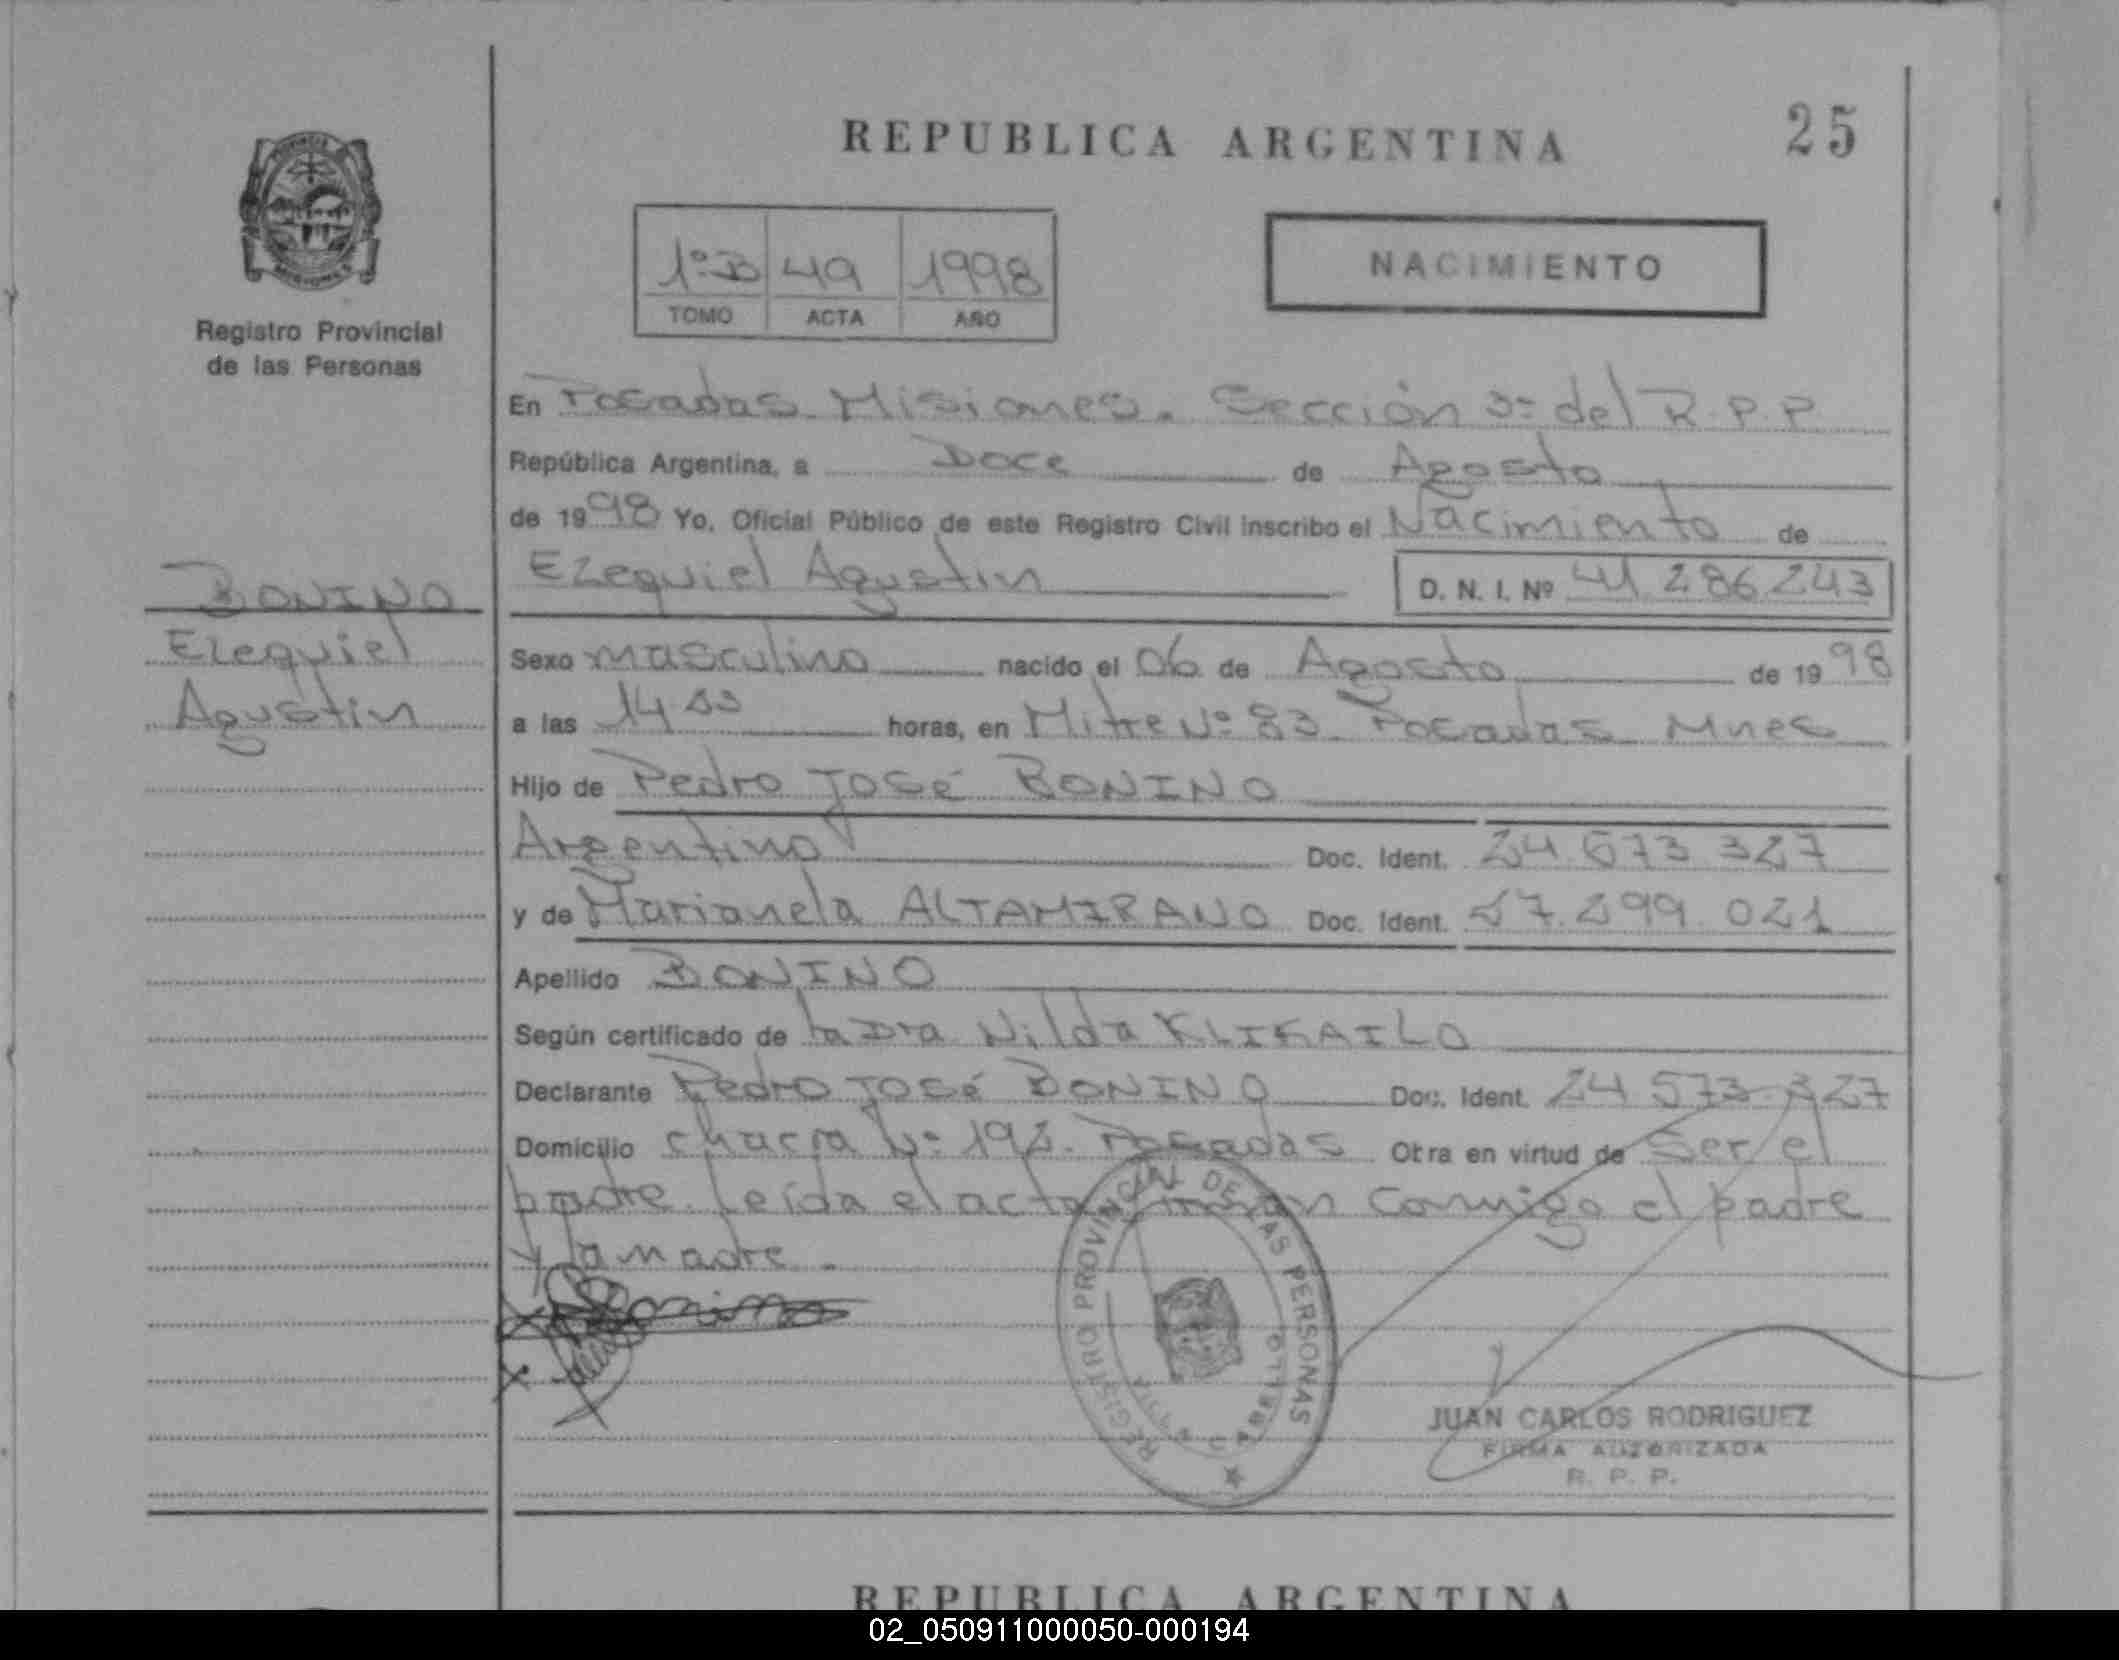 REPUBLICA ARGENTINA
25
Registro Provincial
de las Personas
1º B 49 1998
TOMO ACTA AÑO
NACIMIENTO
En Posadas Misiones. Sección 3º del R.P.P
República Argentina, a Doce de Agosto
de 1998 Yo, Oficial Público de este Registro Civil inscribo el Nacimiento de
Ezequiel Agustin D. N. I. Nº 41 286.243
BONINO
Ezequiel
Agustin
Sexo masculino nacido el 06 de Agosto de 1998
a las 14 horas, en Mitre Nº 83 Posadas Mnes
Hijo de Pedro José BONINO
Argentino Doc. Ident. 24.673 327
y de Marianela ALTAMIRANO Doc. Ident. 27.299.021
Apellido BONINO
Según certificado de la Dra Nilda
Declarante Pedro José BONINO Doc. Ident. 24 573.327
Domicilio chacra Nº 192. Posadas Obra en virtud de Ser el
padre. Leída el acta conmigo el padre
y la madre.
REGISTRO PROVINCIAL DE LAS PERSONAS
JUAN CARLOS RODRIGUEZ
FIRMA AUTORIZADA
R. P. P.
REPUBLICA ARGENTINA
02_050911000050-000194